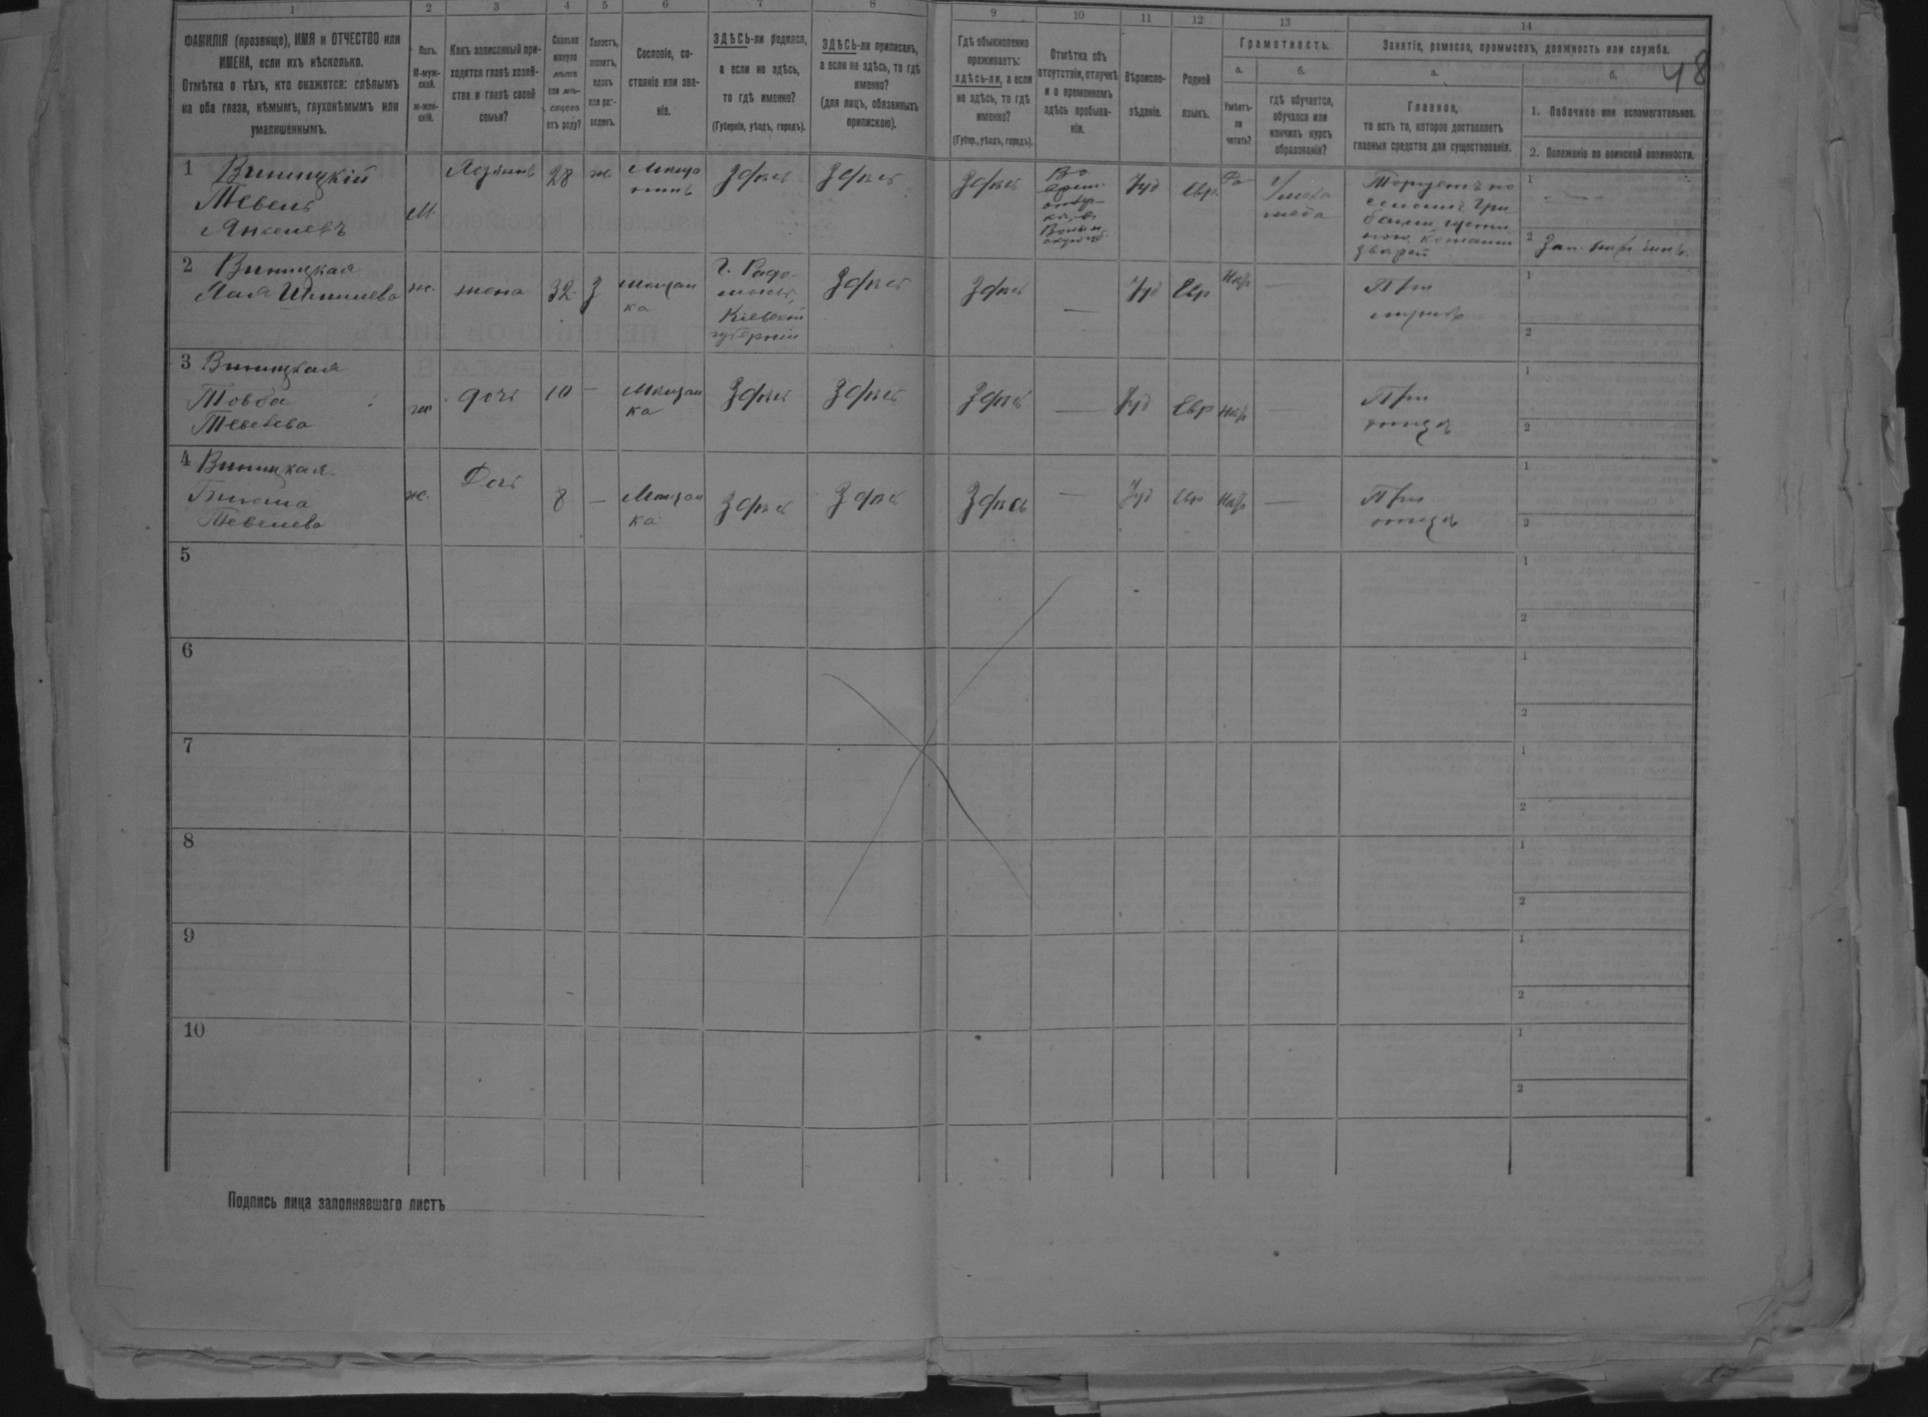 1 2 3 4 5 6 7 8 9 10 11 12 13 14
48
ФАМИЛІЯ (прозвище), ИМЯ и ОТЧЕСТВО или
ИМЕНА, если ихъ нѣсколько.
Отмѣтка о тѣхъ, кто окажется: слѣпымъ
на оба глаза, нѣмымъ, глухонѣмымъ или
умалишеннымъ.
Полъ.
М-муж-
ской.
Ж-жен-
скій.
Какъ записанный при-
ходится главѣ хозяй-
ства и главѣ своей
семьи?
Сколько
минуло
лѣтъ
или мѣ-
сяцевъ
отъ роду?
Холостъ,
женатъ,
вдовъ
или раз-
веденъ.
Сословіе, со-
стояніе или зва-
ніе.
ЗДѢСЬ-ли родился,
а если не здѣсь,
то гдѣ именно?
(Губернія, уѣздъ, городъ).
ЗДѢСЬ-ли приписанъ,
а если не здѣсь, то гдѣ
именно?
(для лицъ, обязанныхъ
припискою).
Гдѣ обыкновенно
проживаетъ:
здѣсь-ли, а если
не здѣсь, то гдѣ
именно?
(Губер., уѣздъ, городъ).
Отмѣтка объ
отсутствіи, отлучкѣ
и о временномъ
здѣсь пребыва-
ніи.
Вѣроиспо-
вѣданіе.
Родной
языкъ.
Грамотность.
а.
Умѣетъ-
ли
читать?
б.
гдѣ обучается,
обучался или
кончилъ курсъ
образованія?
Занятіе, ремесло, промыселъ, должность или служба.
а.
Главное,
то есть то, которое доставляетъ
главныя средства для существованія.
б.
1. Побочное или вспомогательное.
2. Положеніе по воинской повинности.
1 Виницкій
Тевель
Янкелевъ
М.
Хозяинъ
28
ж
Мѣща
нинъ
Здѣсь
Здѣсь
Здѣсь
Во
Іуд
Евр.
Да
Торгуетъ по
1
2
2 Виницкая
ж.
жена
32
З
Мѣщан
ка
Г. Радо-
мысль,
Кіевской
губерніи
Здѣсь
Здѣсь
—
Іуд
Евр
Нѣтъ
—
При
мужѣ
1
2
3 Виницкая
Товба
Тевелева
ж
дочь
10
—
Мѣщан
ка
Здѣсь
Здѣсь
Здѣсь
—
Іуд
Евр
Нѣтъ
—
При
отцѣ
1
2
4 Виницкая
Тевелева
ж.
Дочь
8
—
Мѣщан
ка
Здѣсь
Здѣсь
Здѣсь
—
Іуд
Евр
Нѣтъ
—
При
отцѣ
1
2
5
1
2
6
1
2
7
1
2
8
1
2
9
1
2
10
1
2
Подпись лица заполнявшаго листъ